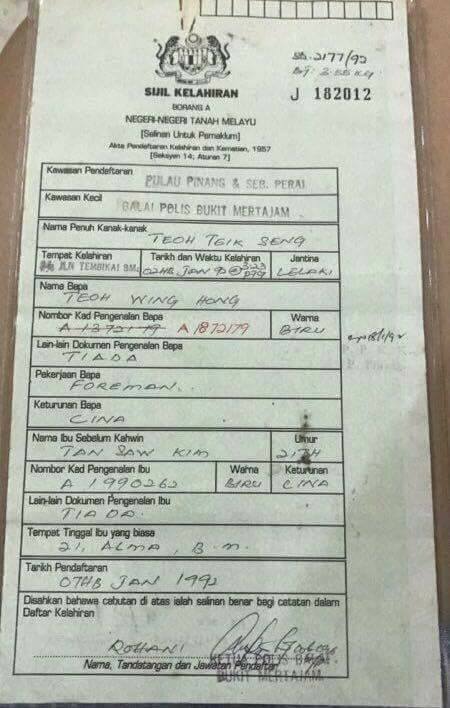 2177/92
BT: 3.55 KG
SIJIL KELAHIRAN
J 182012
BORANG A
NEGERI-NEGERI TANAH MELAYU
[Salinan Untuk Pemaklum]
Akta Pendaftaran Kelahiran dan Kematian, 1957
[Seksyen 14; Aturan 7]
Kawasan Pendaftaran
PULAU PINANG & SEB. PERAI
Kawasan Kecil
BALAI POLIS BUKIT MERTAJAM
Nama Penuh Kanak-kanak
TEOH TEIK SENG
Tempat Kelahiran Tarikh dan Waktu Kelahiran Jantina
JLN TEMBIKAI BM. 02HB JAN LELAKI
Nama Bapa
TEOH WING HONG
Nombor Kad Pengenalan Bapa Warna
A 1372179 A 1872179 BIRU
Lain-lain Dokumen Pengenalan Bapa
TIADA
Pekerjaan Bapa
FOREMAN.
Keturunan Bapa
CINA
Nama Ibu Sebelum Kahwin Umur
TAN SAW KIM 21TH
Nombor Kad Pengenalan Ibu Warna Keturunan
A 1990262 BIRU CINA
Lain-lain Dokumen Pengenalan Ibu
TIADA.
Tempat Tinggal Ibu yang biasa
21, ALMA, B.M.
Tarikh Pendaftaran
07HB JAN 1992
Disahkan bahawa cabutan di atas ialah salinan benar bagi catatan dalam
Daftar Kelahiran
ROHANI
Nama, Tandatangan dan Jawatan Pendaftar
KETUA POLIS BALAI
BUKIT MERTAJAM